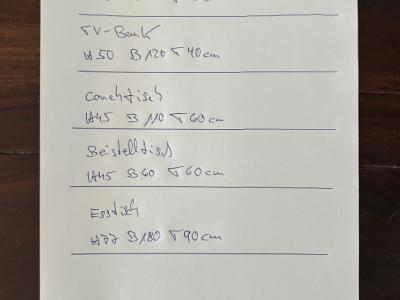 TV-Bank
H50 B120 T40cm
Couchtisch
H45 B110 T60cm
Beistelltisch
H45 B60 T60cm
Esstisch
H77 B180 T90cm